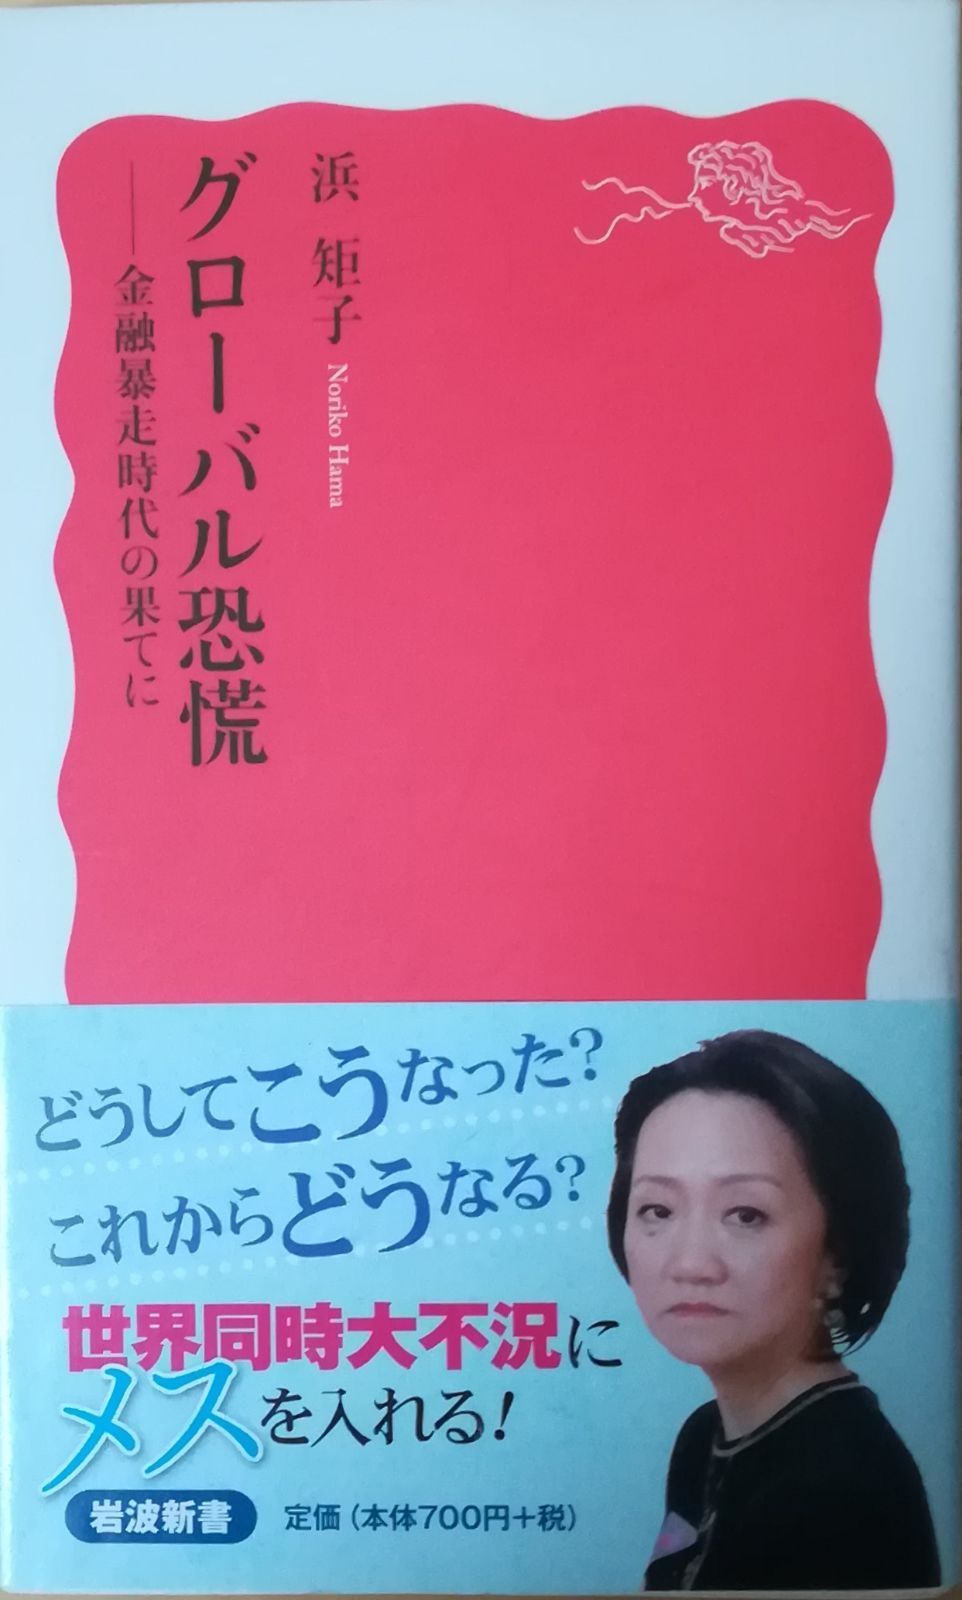 浜 矩子 Noriko Hama
グローバル恐慌
──金融暴走時代の果てに
どうしてこうなった?
これからどうなる?
世界同時大不況に
メスを入れる!
岩波新書 定価(本体700円+税)